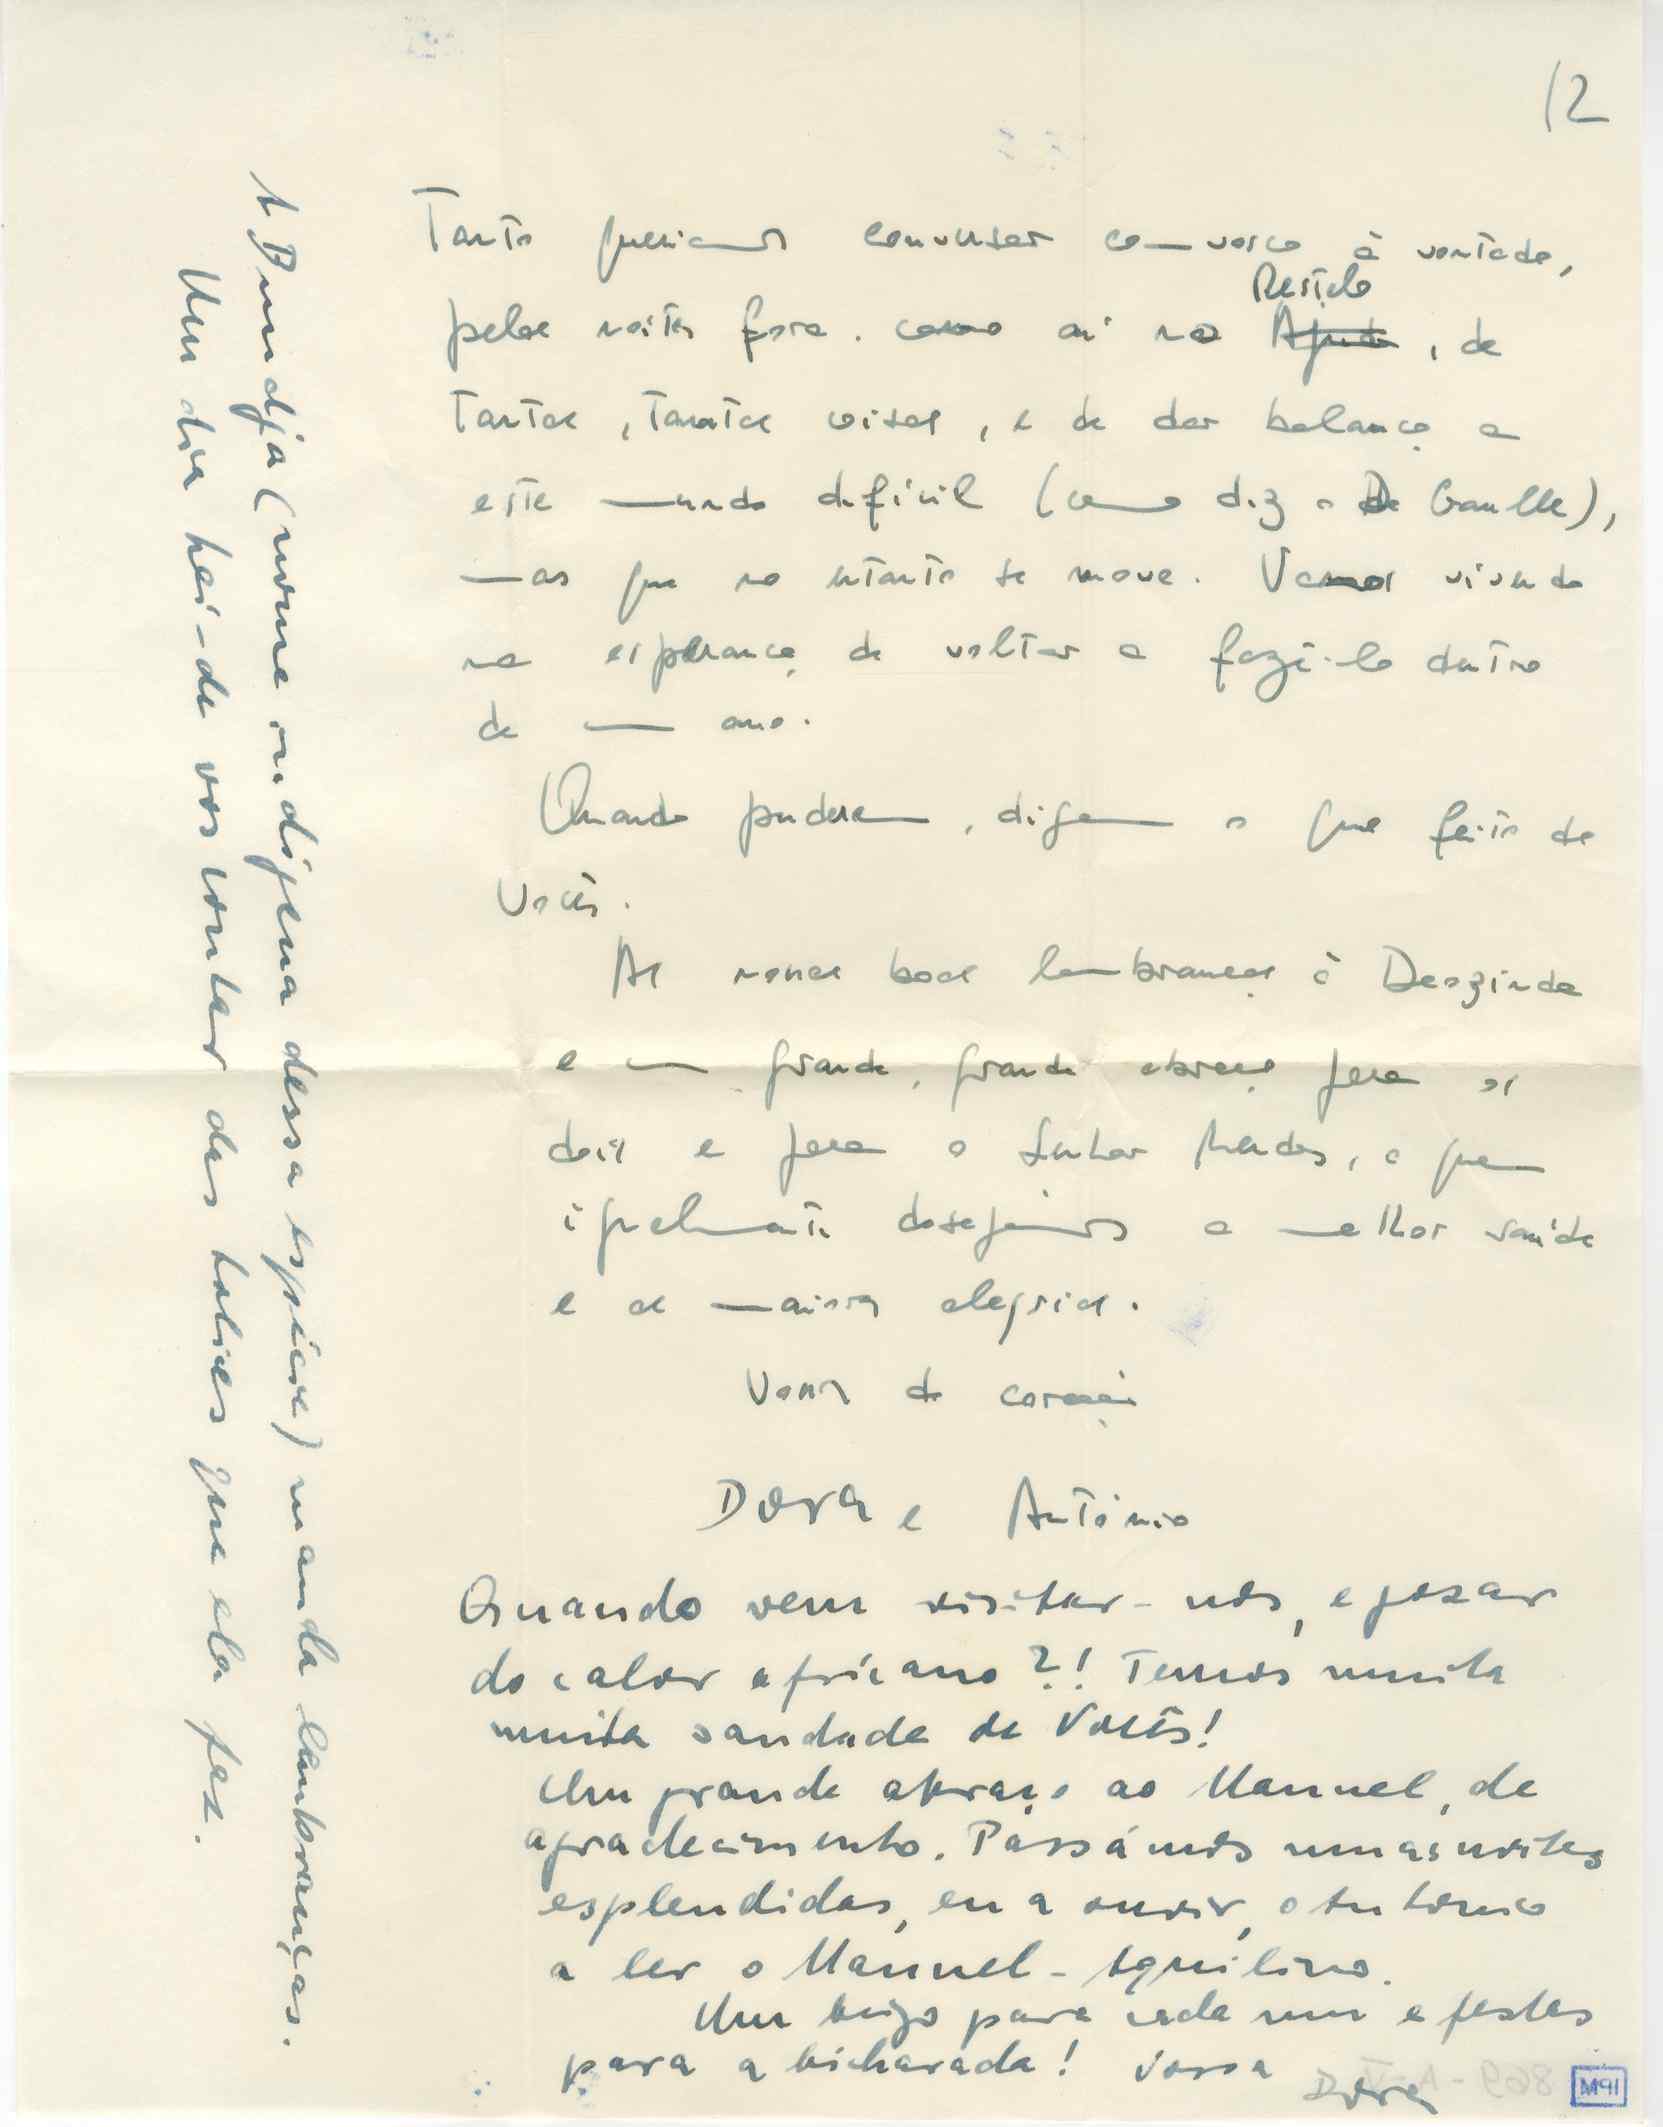 12
Tanto queríamos conversar convosco à vontade,
pelas noites fora. como aí no Restelo
Ajuda, de
tantas, tantas coisas, e de dar balanço a
este mundo difícil (como diz o De Gaulle),
mas que no entanto se move. Vamos vivendo
na esperança de voltar a fazê-lo dentro
de um ano.
Quando puderem, digam o que feito de
Vocês.
As nossas boas lembranças à Deozinda
e um grande, grande abraço para os
dois e para o Senhor Mendes, a quem
igualmente desejamos a melhor saúde
e as maiores alegrias.
Vossos do coração
Dora e António
Quando vem visitar-nos, e gozar
do calor africano?! Temos muita
muita saudade de Vocês!
Um grande abraço ao Manuel, de
agradecimento. Passámos umas noites
esplendidas, eu a ouvir, o António
a ler o Manuel-Aquilino.
Um beijo para cada um e festas
para a bicharada! Vossa
Dora
A Bundja (nome indígena dessa espécie) manda lembranças.
Um dia hei-de vos contar das tolices que ela fez.
869-A-V
M91